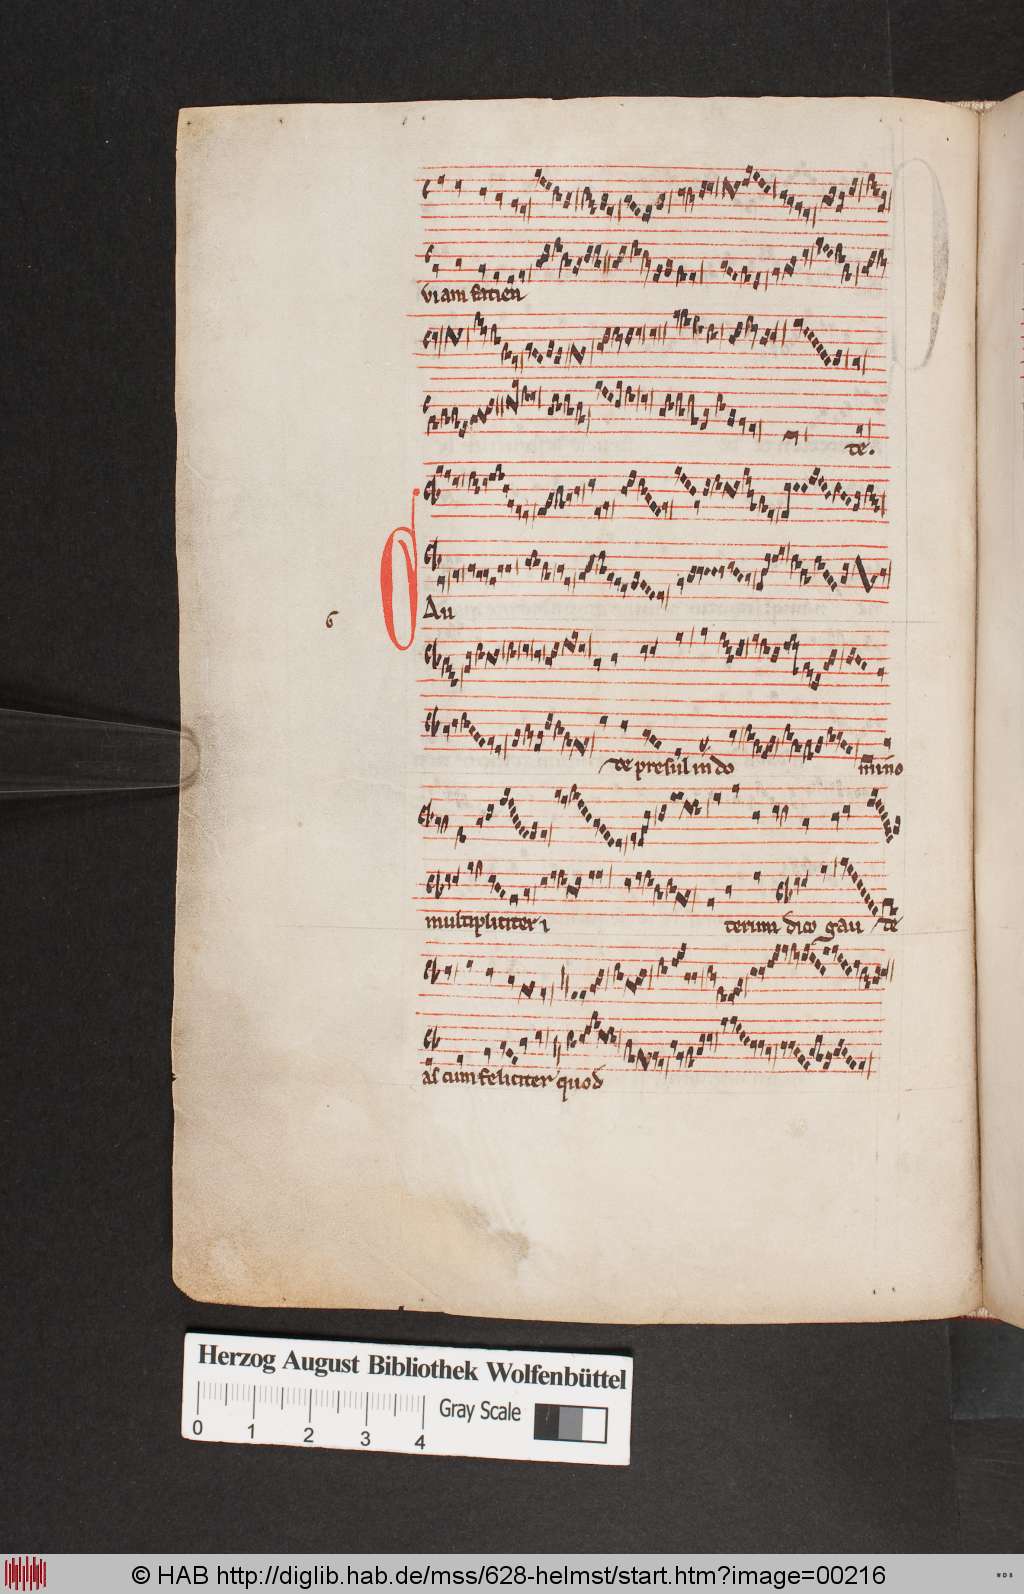 viam facien
te.
6
Gau
te presul in do mino
multipliciter i terum dico gau te
as cum feliciter quod
Herzog August Bibliothek Wolfenbüttel
0 1 2 3 4 Gray Scale
© HAB http://diglib.hab.de/mss/628-helmst/start.htm?image=00216